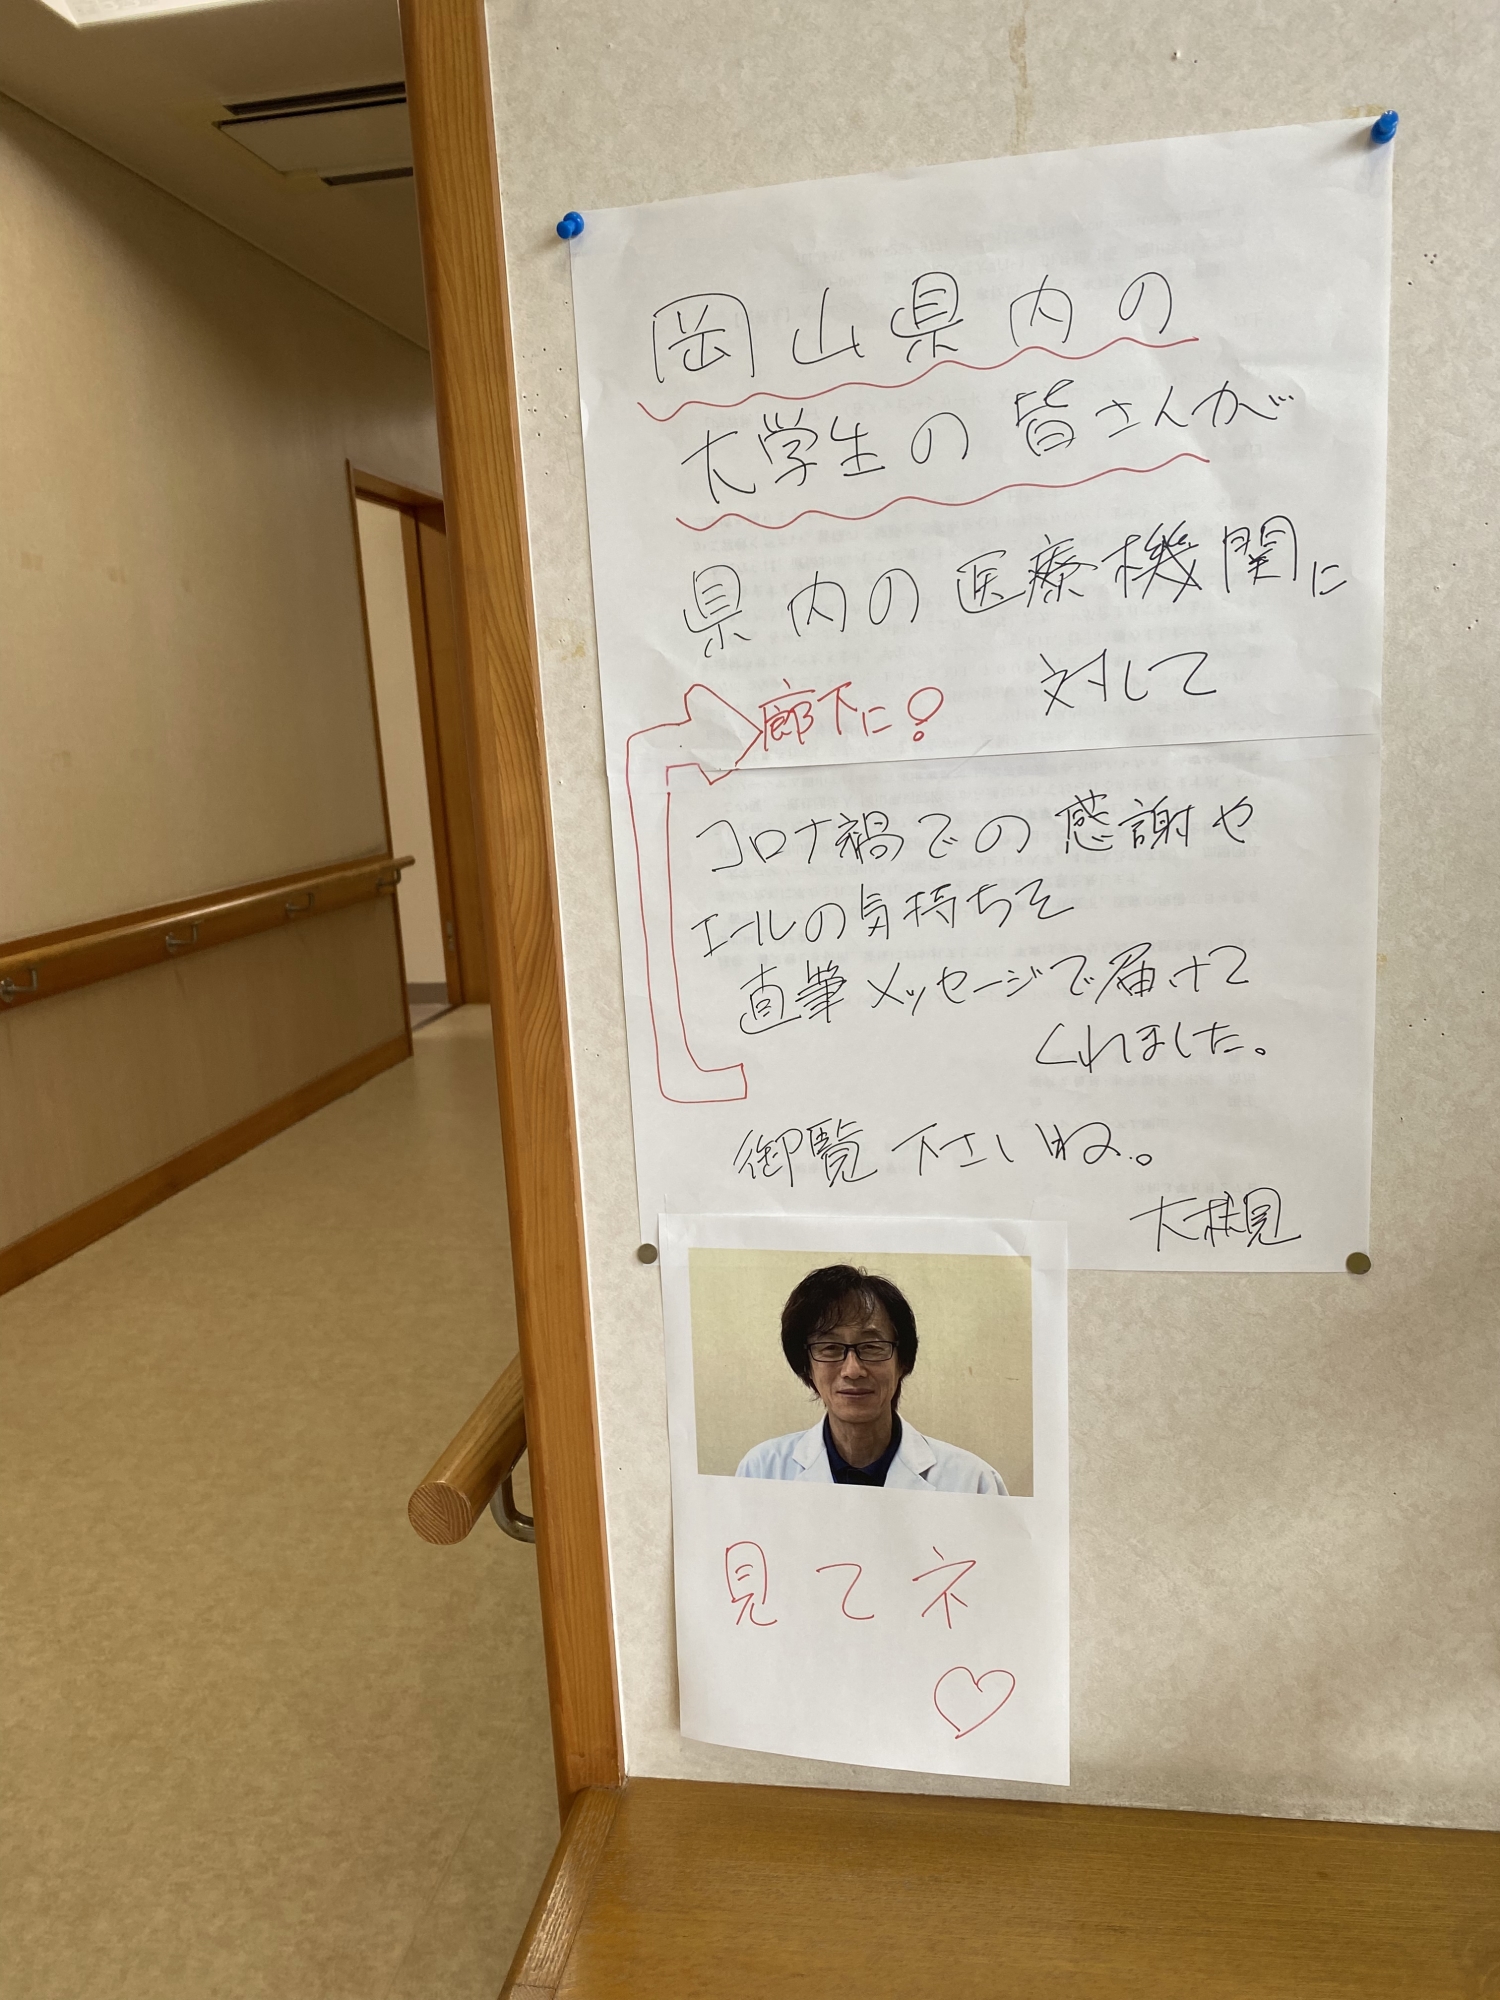 岡山県内の
大学生の皆さんが
県内の医療機関に
対して
廊下に!
コロナ禍での感謝や
エールの気持ちを
直筆メッセージで届けて
くれました。
御覧下さいね。
見てネ